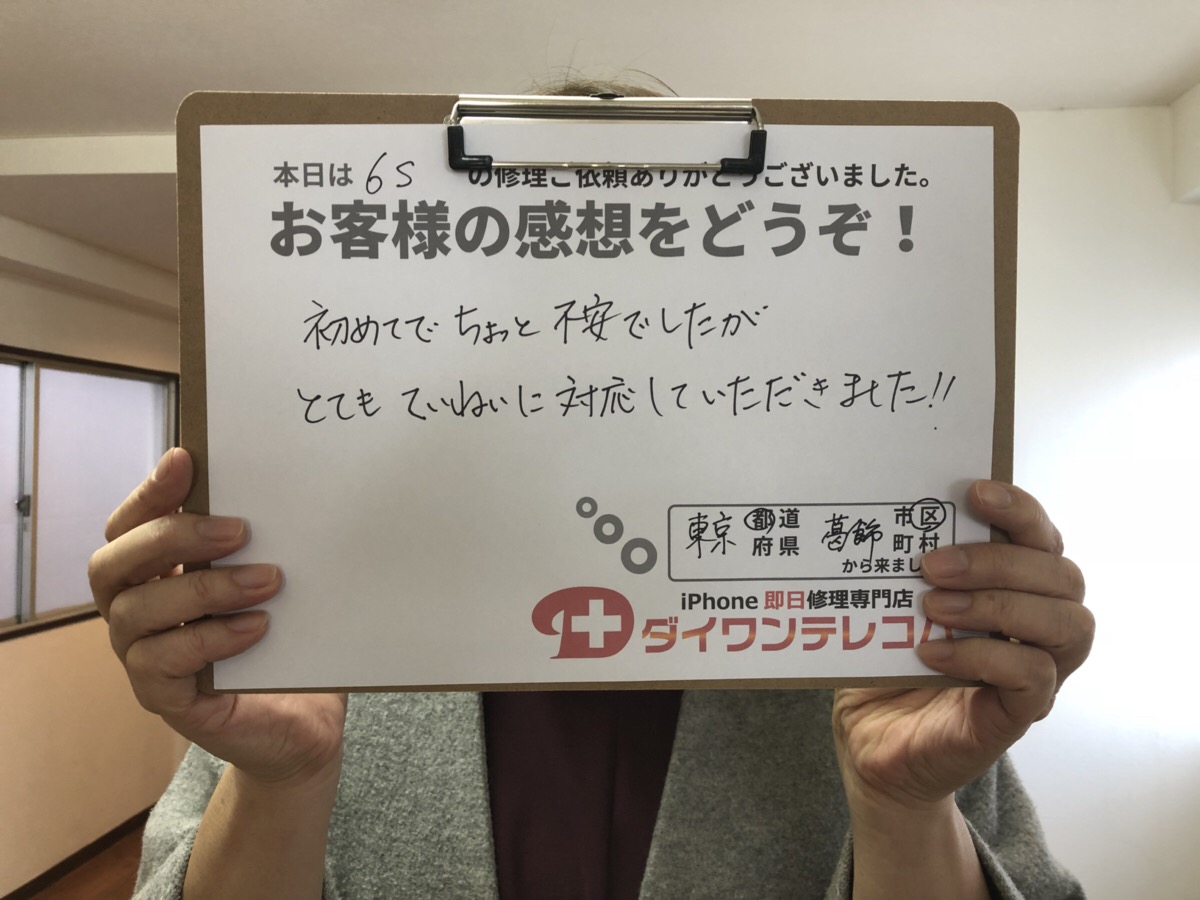 本日は 6S の修理ご依頼ありがとうございました。
お客様の感想をどうぞ！
初めてで ちょっと 不安でしたが
とても ていねいに 対応していただきました!!
東京 都道府県 葛飾 市区町村
から来まし
iPhone 即日修理専門店
ダイワンテレコ